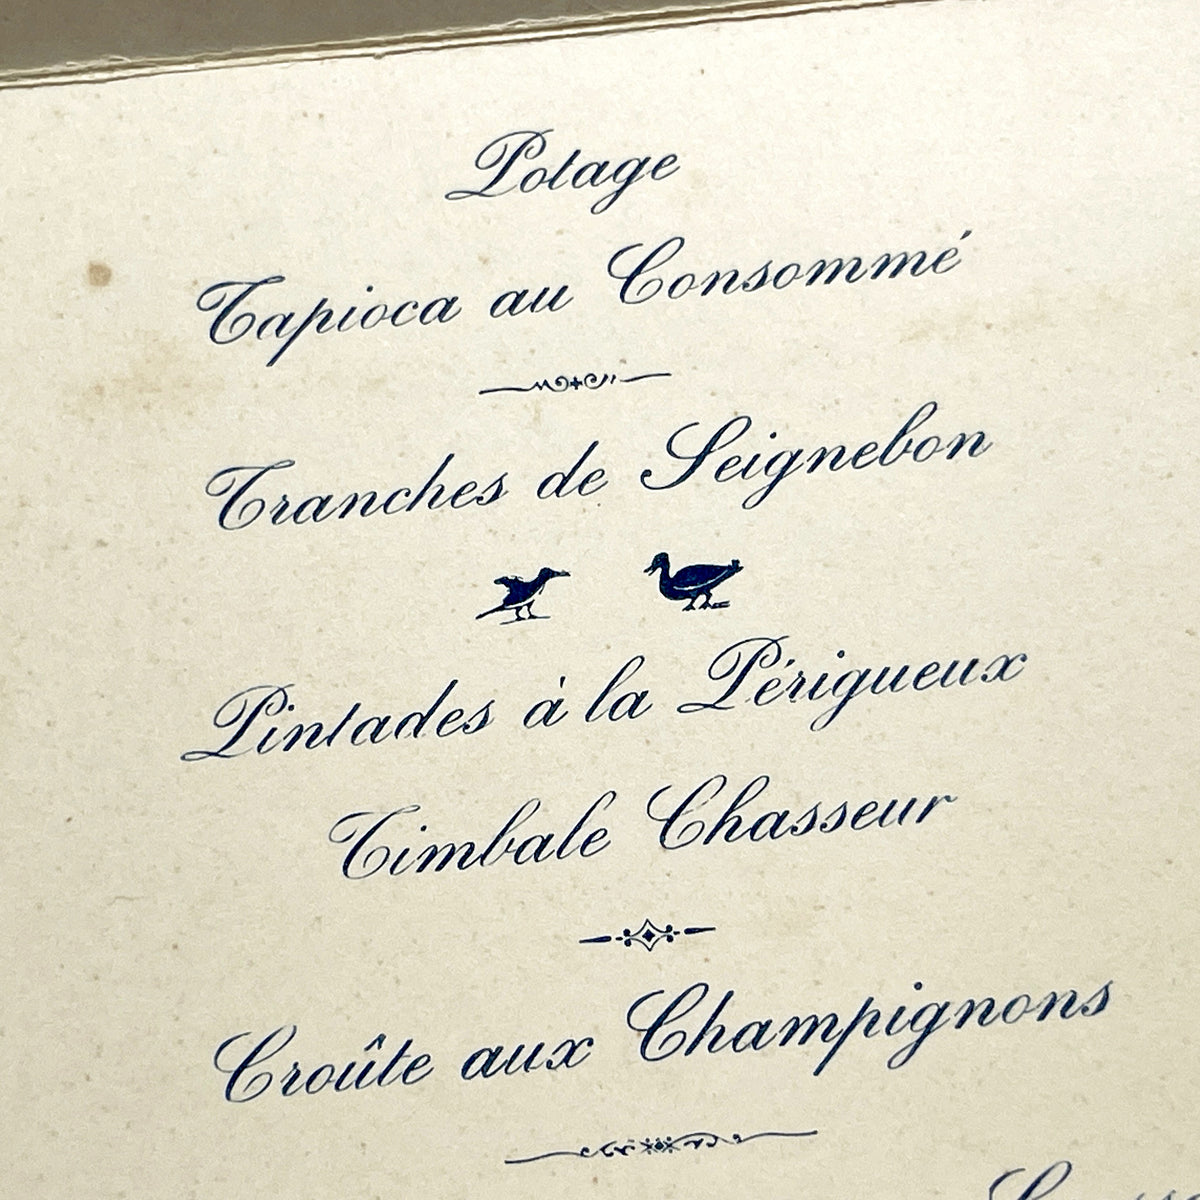 Potage
Tapioca au Consommé
Tranches de Seignebon
Pintades à la Périgueux
Timbale Chasseur
Croûte aux Champignons